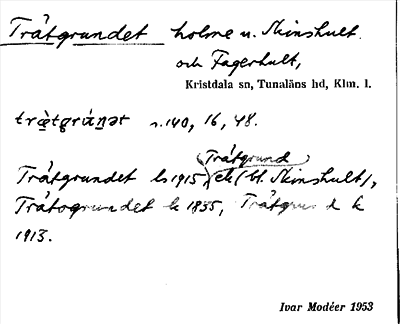 Tråtgrundet holme u. Skinshult
och Fagerhult,
Kristdala sn, Tunaläns hd, Klm. l.
s. 140, 16, 48.
(Tråtgrund
Tråtgrundet ls 1915) ek (bl. Skinshult),
Tråtogrundet k 1835, Tråtgrund k
1913.
Ivar Modéer 1953